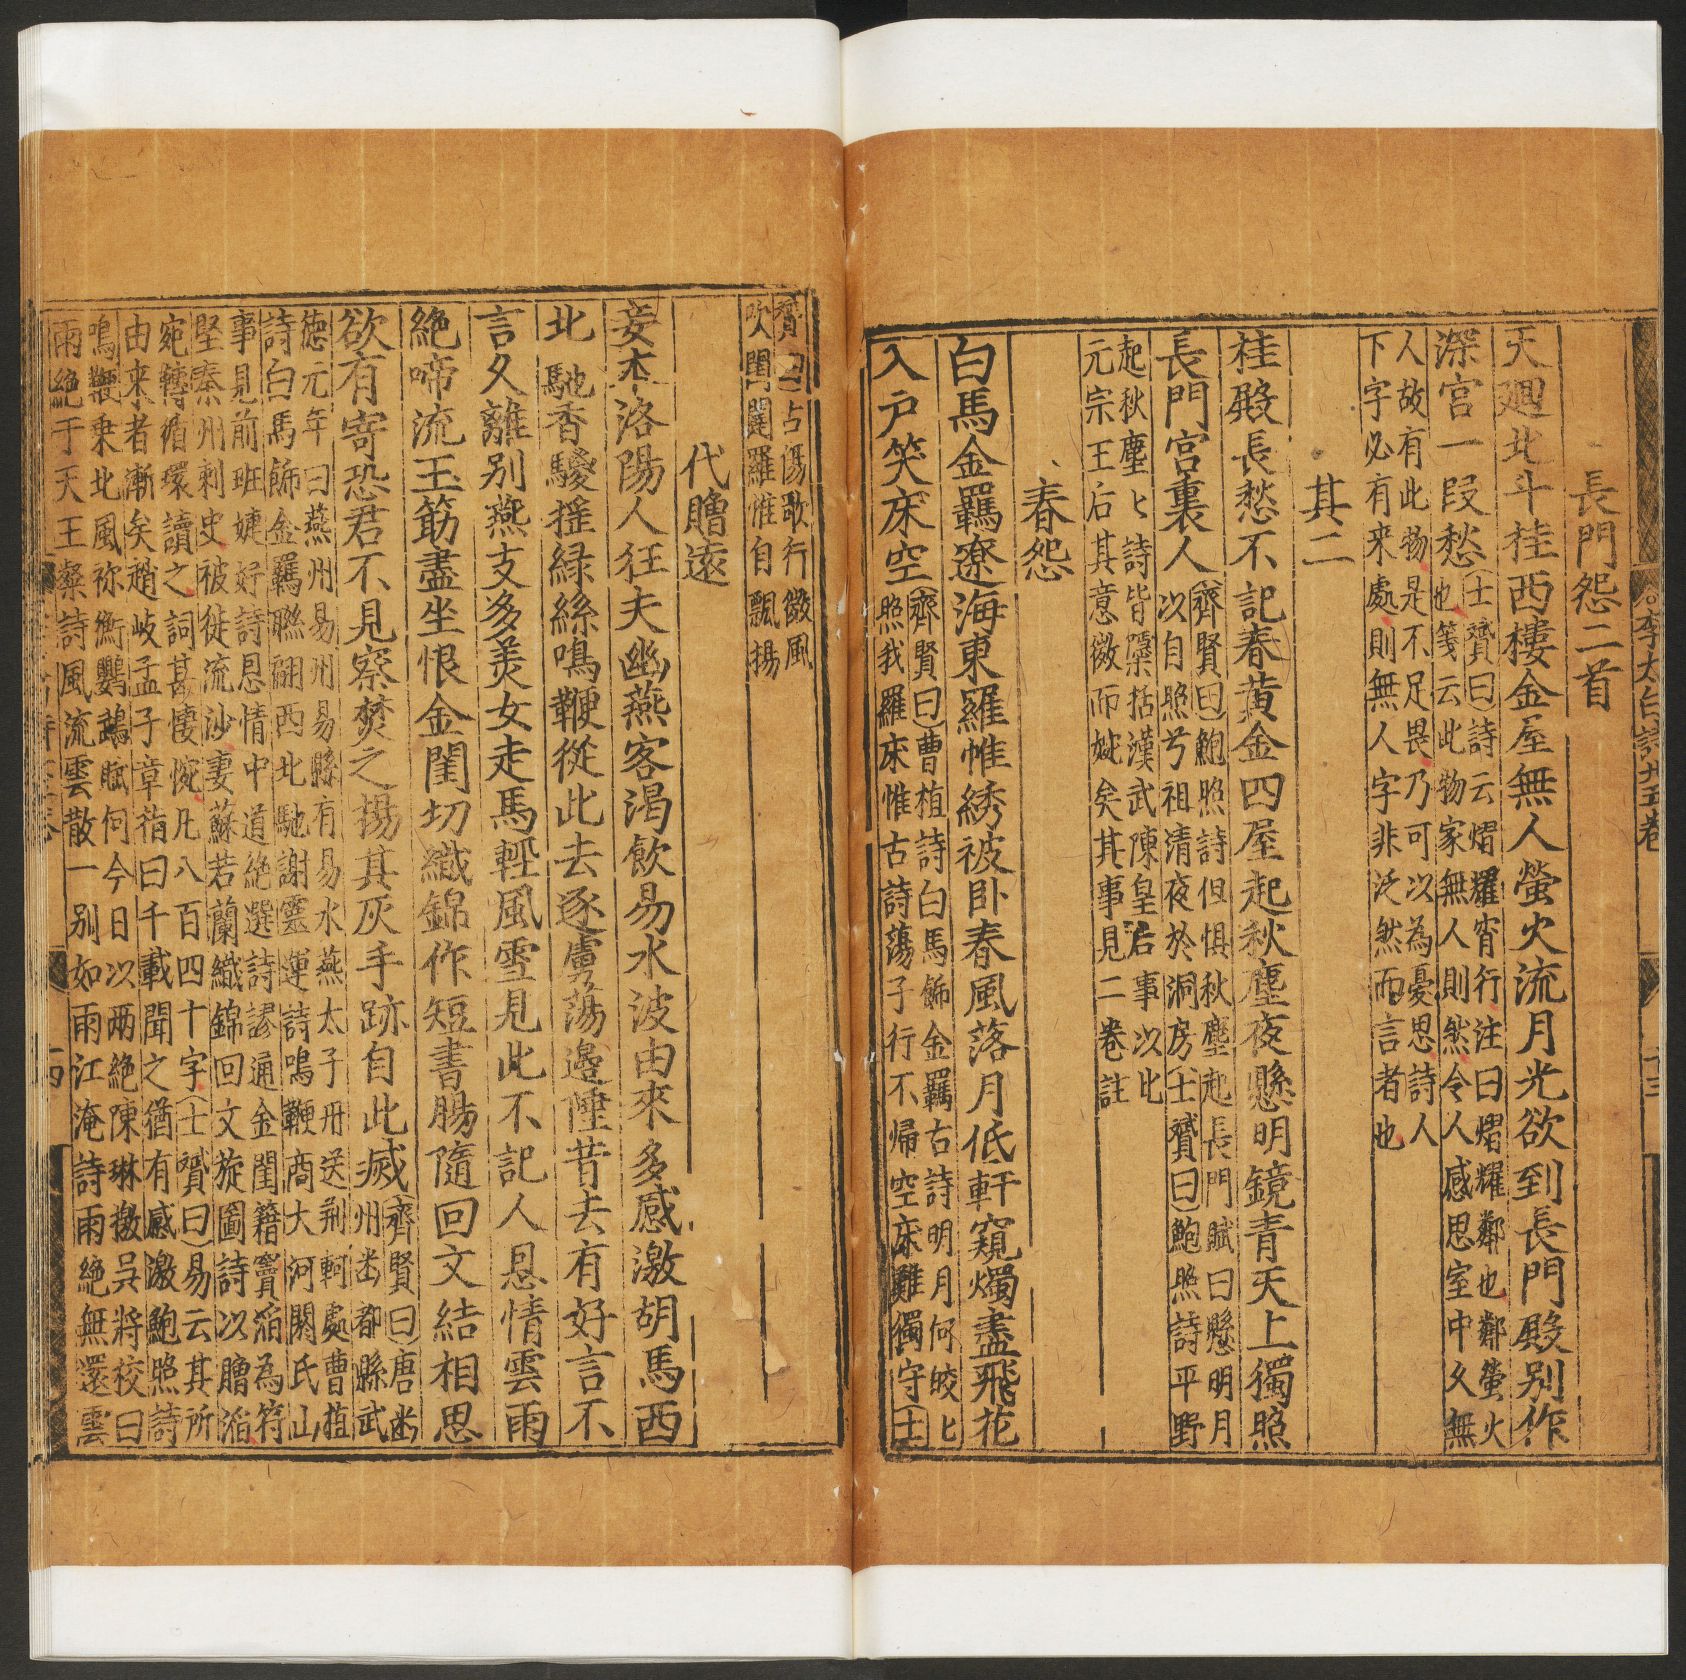 李太白詩廿五卷
十三
長門怨二首
天廻北斗桂西樓金屋無人螢火流月光欲到長門殿别作
深宫一叚愁
士贇曰詩云熠耀宵行注曰熠耀鄰也鄰螢火
也箋云此物家無人則然令人感思室中久無
人故有此物是不足畏乃可以為憂思詩人
下字必有来處則無人字非泛然而言者也
其二
桂殿長愁不記春黄金四屋起秋塵夜懸明鏡青天上獨照
長門宫裏人
齊賢曰鮑照詩但惧秋塵起長門賦曰懸明月
以自照兮祖清夜於洞房士贇曰鮑照詩平野
起秋塵〻詩皆櫽括漢武陳皇后事以比
元宗王后其意微而婉矣其事見二卷註
春怨
白馬金羈遼海東羅帷綉被卧春風落月低軒窺燭盡飛花
入户笑床空
齊賢曰曹植詩白馬飾金羈古詩明月何皎〻
照我羅床帷古詩蕩子行不帰空床難獨守士
贇曰古傷歌行微風
吹人閨闥羅帷自飄揚
代贈遠
妾本洛陽人狂夫幽燕客渴飲易水波由來多感激胡馬西
北馳香騣揺緑絲鳴鞭從此去逐虜蕩邊陲昔去有好言不
言久離别燕支多美女走馬輕風雪見此不記人恩情雲雨
絶啼流玉筯盡坐恨金閨切織錦作短書腸隨回文結相思
欲有寄恐君不見察焚之揚其灰手跡自此滅
齊賢曰唐幽
州幽都縣武
徳元年曰燕州易州易縣有易水燕太子丹送荆軻處曹植
詩白馬飾金羈聯翩西北馳謝靈運詩鳴鞭商大河閼氏山
事見前班婕好詩恩情中道絶選詩謬通金閨籍竇滔為苻
堅秦州刺史被徙流沙妻蘇若蘭織錦回文旋圖詩以贈滔
宛轉循環讀之詞甚悽惋凡八百四十字士贇曰易云其所
由来者漸矣趙岐孟子章㫖曰千載聞之猶有感激鮑照詩
鳴鞭乗北風祢衡鸚鵡賦何今日以兩絶陳琳檄呉將校曰
雨絶于天王粲詩風流雲散一别如雨江淹詩雨絶無還雲